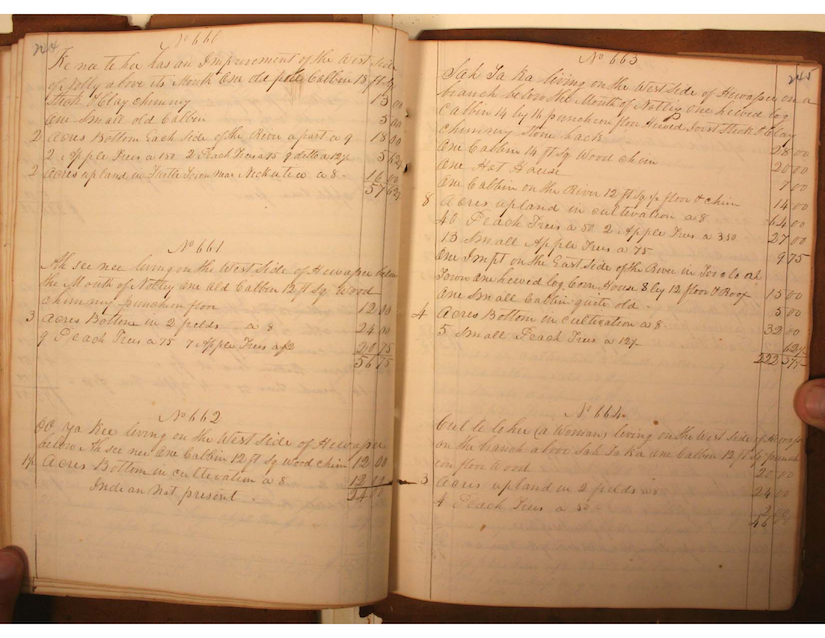 244
No 660
Ke nee te ha has an Improvement of the West Side
of Notly above its Mouth One old pole Cabbin 18 ft Sq
Stick & Clay chimny 15 00
One Small old Cabbin 5 00
2 Acres Bottom Each side of the River a part a 9 18 00
2 Apple Trees 2 Peach Trees 9 ditto a 12½ 3 62½
2 Acres up land in Little Town near a 8 - 16 00
57 62½
No 661
Ah see nee living on the West Side of Hewassee below
the Mouth of Notley One old Cabbin 12 ft Sq Wood
chimny puncheon floor 12 00
3 Acres Bottom in 2 fields a 8 24 00
9 Peach Trees a 75 7 Apple Trees 20 75
56 75
No 662
OO ya kee living on the West Side of Hewassee
above Ah see nee One Cabbin 12 ft Sq Wood chim 12 00
1½ Acres Bottom in cultivation a 8 12 00
Indian Not present - 24 00
245
No 663
Sah Ta Ka living on the West Side of Hewassee on a
branch below the Mouth of Notley One hewed log
Cabbin 14 by 16 puncheon floor Hewed Joist Stick & Clay
chimny Stone back 28 00
One Cabbin 14 ft Sq Wood chim 20 00
One Hot House 7 00
One Cabbin on the River 12 ft Sq p floor & chim 14 00
8 Acres upland in cultivation a 8 64 00
40 Peach Trees a 50 2 Apple Trees a 350 27 00
13 Small Apple Trees a 75 9 75
One Impt on the East Side of the River in
Town one hewed log Corn House 8 by 12 floor & Roof 15 00
One Small Cabbin quite old - 5 00
4 Acres Bottom in cultivation a 8 32 00
5 Small Peach Trees a 12½ 62½
222 37½
No 664
Cul le lo her (a Woman) living on the West Side of Hewassee
on the branch above Sah Ta Ka One Cabbin 12 ft Sq punch
eon floor Wood 20 00
3 Acres upland in 2 fields a 8 24 00
4 Peach Trees a 50 - 2 00
46 00